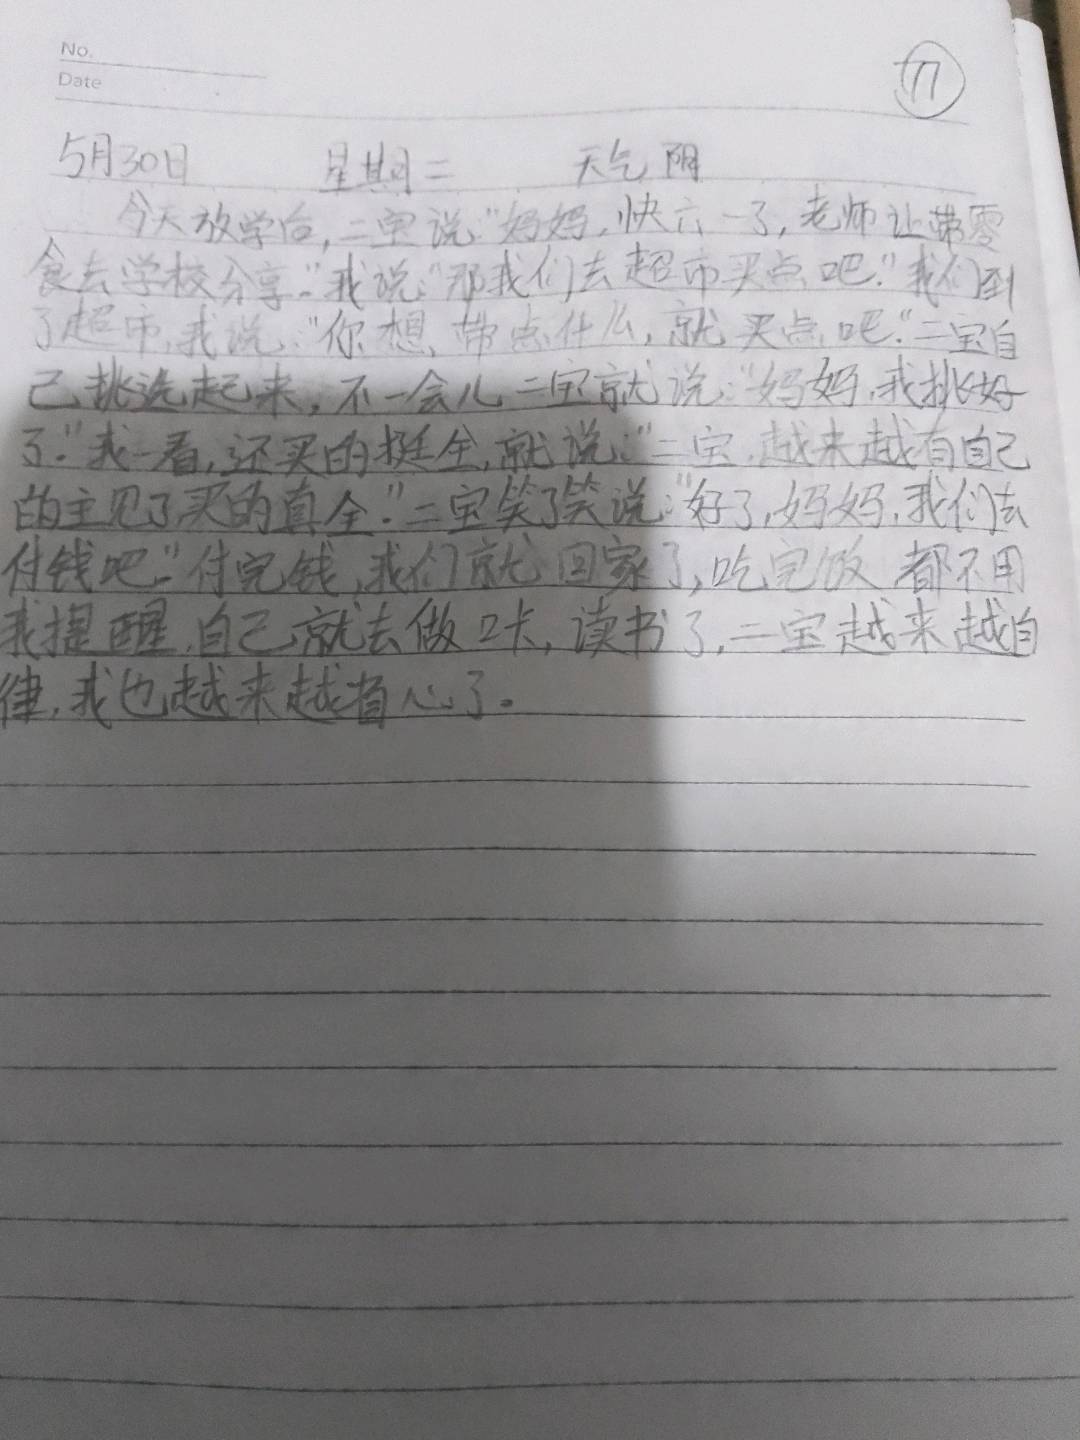 No.
Date
5月30日 星期二 天气 阴
今天放学后,二宝说:"妈妈,快六一了,老师让带零
食去学校分享."我说:"那我们去超市买点吧."我们到
了超市,我说:"你想带点什么,就买点吧."二宝自
己挑选起来,不一会儿二宝就说:"妈妈,我挑好
了."我一看,还买的挺全,就说:"二宝,越来越有自己
的主见了,买的真全."二宝笑了笑说:"好了,妈妈,我们去
付钱吧."付完钱,我们就回家了,吃完饭 都不用
我提醒,自己就去做口卡,读书了,二宝越来越自
律,我也越来越省心了。